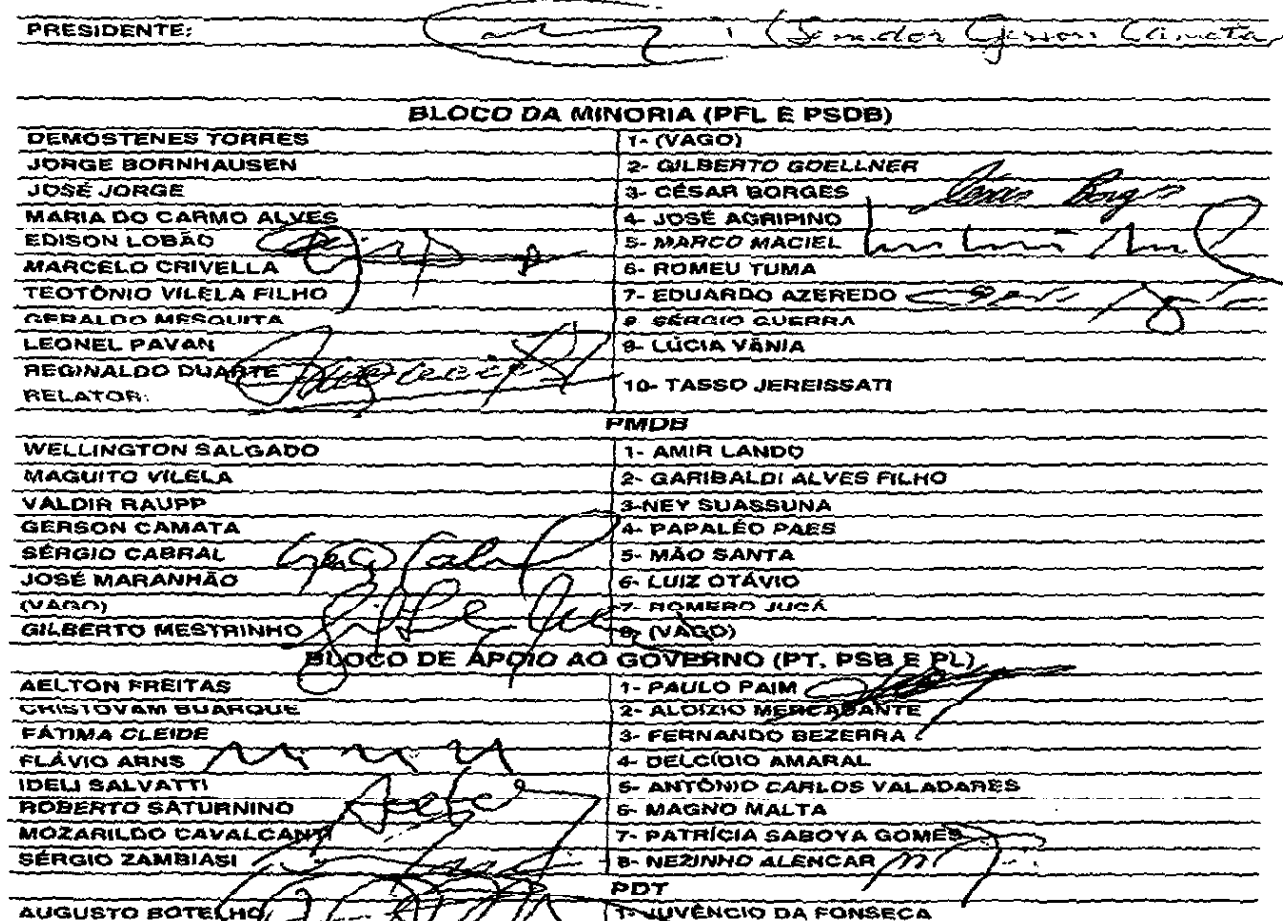 PRESIDENTE: (Senador Gerson Camata)
BLOCO DA MINORIA (PFL E PSDB)
DEMOSTENES TORRES 1- (VAGO)
JORGE BORNHAUSEN 2- GILBERTO GOELLNER
JOSÉ JORGE 3- CÉSAR BORGES
MARIA DO CARMO ALVES 4- JOSÉ AGRIPINO
EDISON LOBÃO 5- MARCO MACIEL
MARCELO CRIVELLA 6- ROMEU TUMA
TEOTÔNIO VILELA FILHO 7- EDUARDO AZEREDO
GERALDO MESQUITA 8 SÉRGIO GUERRA
LEONEL PAVAN 9- LÚCIA VÂNIA
REGINALDO DUARTE
RELATOR: 10- TASSO JEREISSATI
PMDB
WELLINGTON SALGADO 1- AMIR LANDO
MAGUITO VILELA 2- GARIBALDI ALVES FILHO
VALDIR RAUPP 3-NEY SUASSUNA
GERSON CAMATA 4- PAPALÉO PAES
SÉRGIO CABRAL 5- MÃO SANTA
JOSÉ MARANHÃO 6- LUIZ OTÁVIO
(VAGO) 7- ROMERO JUCÁ
GILBERTO MESTRINHO 8- (VAGO)
BLOCO DE APOIO AO GOVERNO (PT, PSB E PL)
AELTON FREITAS 1- PAULO PAIM
CRISTOVAM BUARQUE 2- ALOIZIO MERCADANTE
FÁTIMA CLEIDE 3- FERNANDO BEZERRA
FLÁVIO ARNS 4- DELCÍDIO AMARAL
IDELI SALVATTI 5- ANTÔNIO CARLOS VALADARES
ROBERTO SATURNINO 6- MAGNO MALTA
MOZARILDO CAVALCANTI 7- PATRÍCIA SABOYA GOMES
SÉRGIO ZAMBIASI 8- NEZINHO ALENCAR
PDT
AUGUSTO BOTELHO 1- JUVÊNCIO DA FONSECA